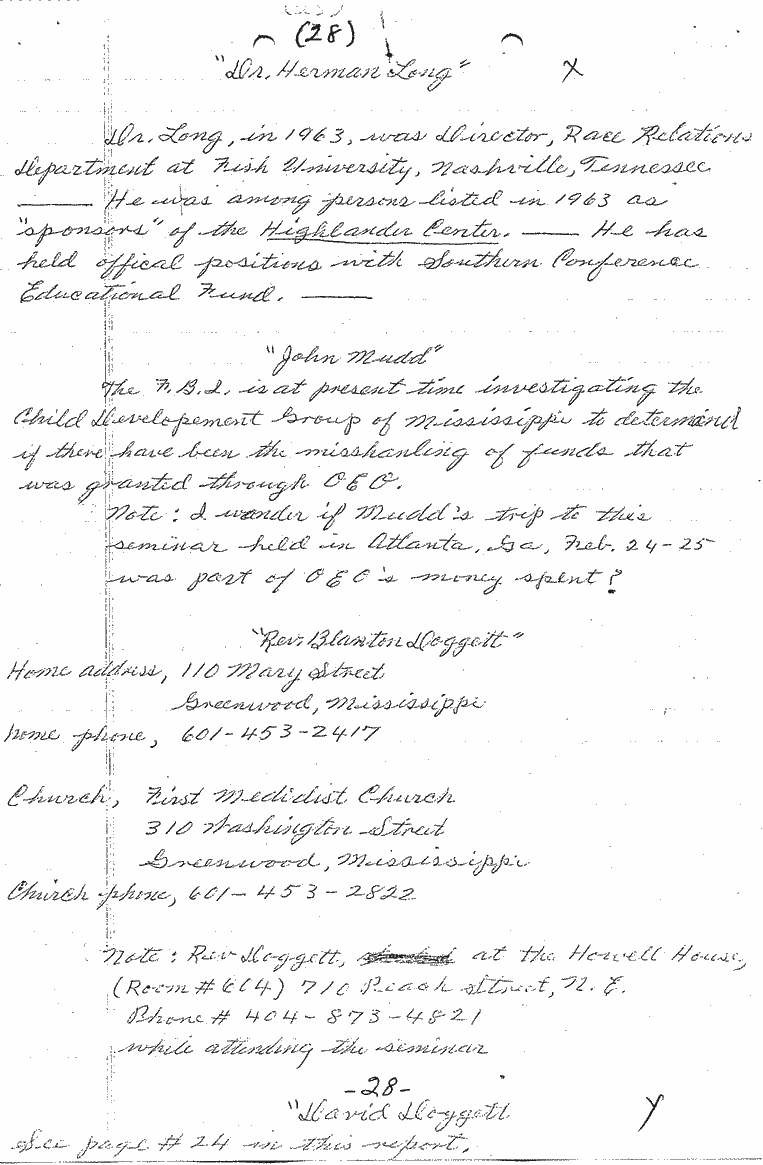 (28)
"Dr. Herman Long" X
Dr. Long, in 1963, was Director, Race Relations
Department at Fisk University, Nashville, Tennessee
—— He was among persons listed in 1963 as
"sponsors" of the Highlander Center. —— He has
held offical positions with Southern Conference
Educational Fund. ——
"John Mudd"
The F.B.I. is at present time investigating the
Child Developement Group of Mississippi to determind
if there have been the misshanling of funds that
was granted through OEO.
Note: I wonder if Mudd's trip to this
seminar held in Atlanta, Ga, Feb. 24-25
was part of OEO's money spent?
"Rev. Blanton Doggett"
Home address, 110 Mary Street
Greenwood, Mississippi
home phone, 601-453-2417
Church, First Medidist Church
310 Washington Street
Greenwood, Mississippi
Church phone, 601-453-2822
Note: Rev Doggett, at the Howell House,
(Room # 604) 710 Peach Street, N.E.
Phone # 404-873-4821
while attending the seminar
-28-
"David Doggett Y
See page # 24 in this report.